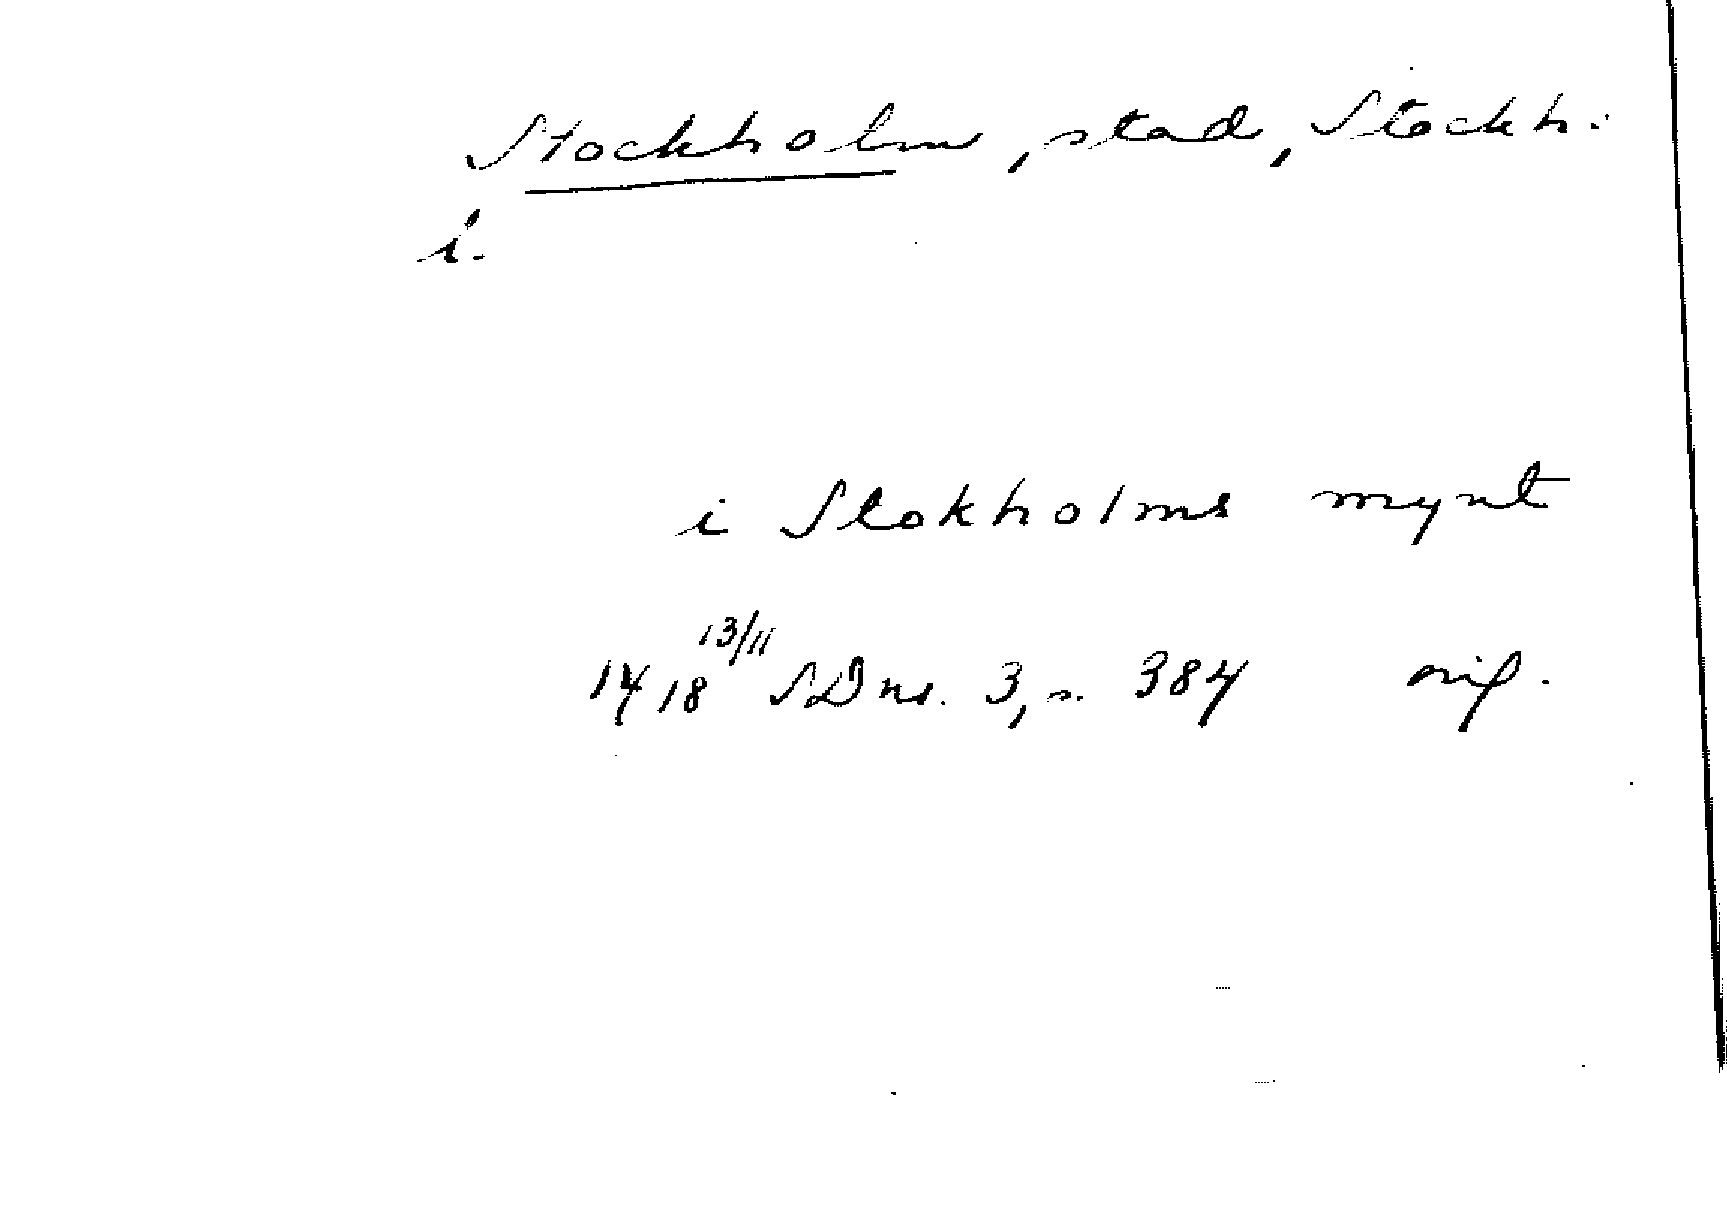 Stockholm, stad, Stockh.
i.
i Stokholms mynt
1418 13/11 SDns. 3, s. 384 orig.